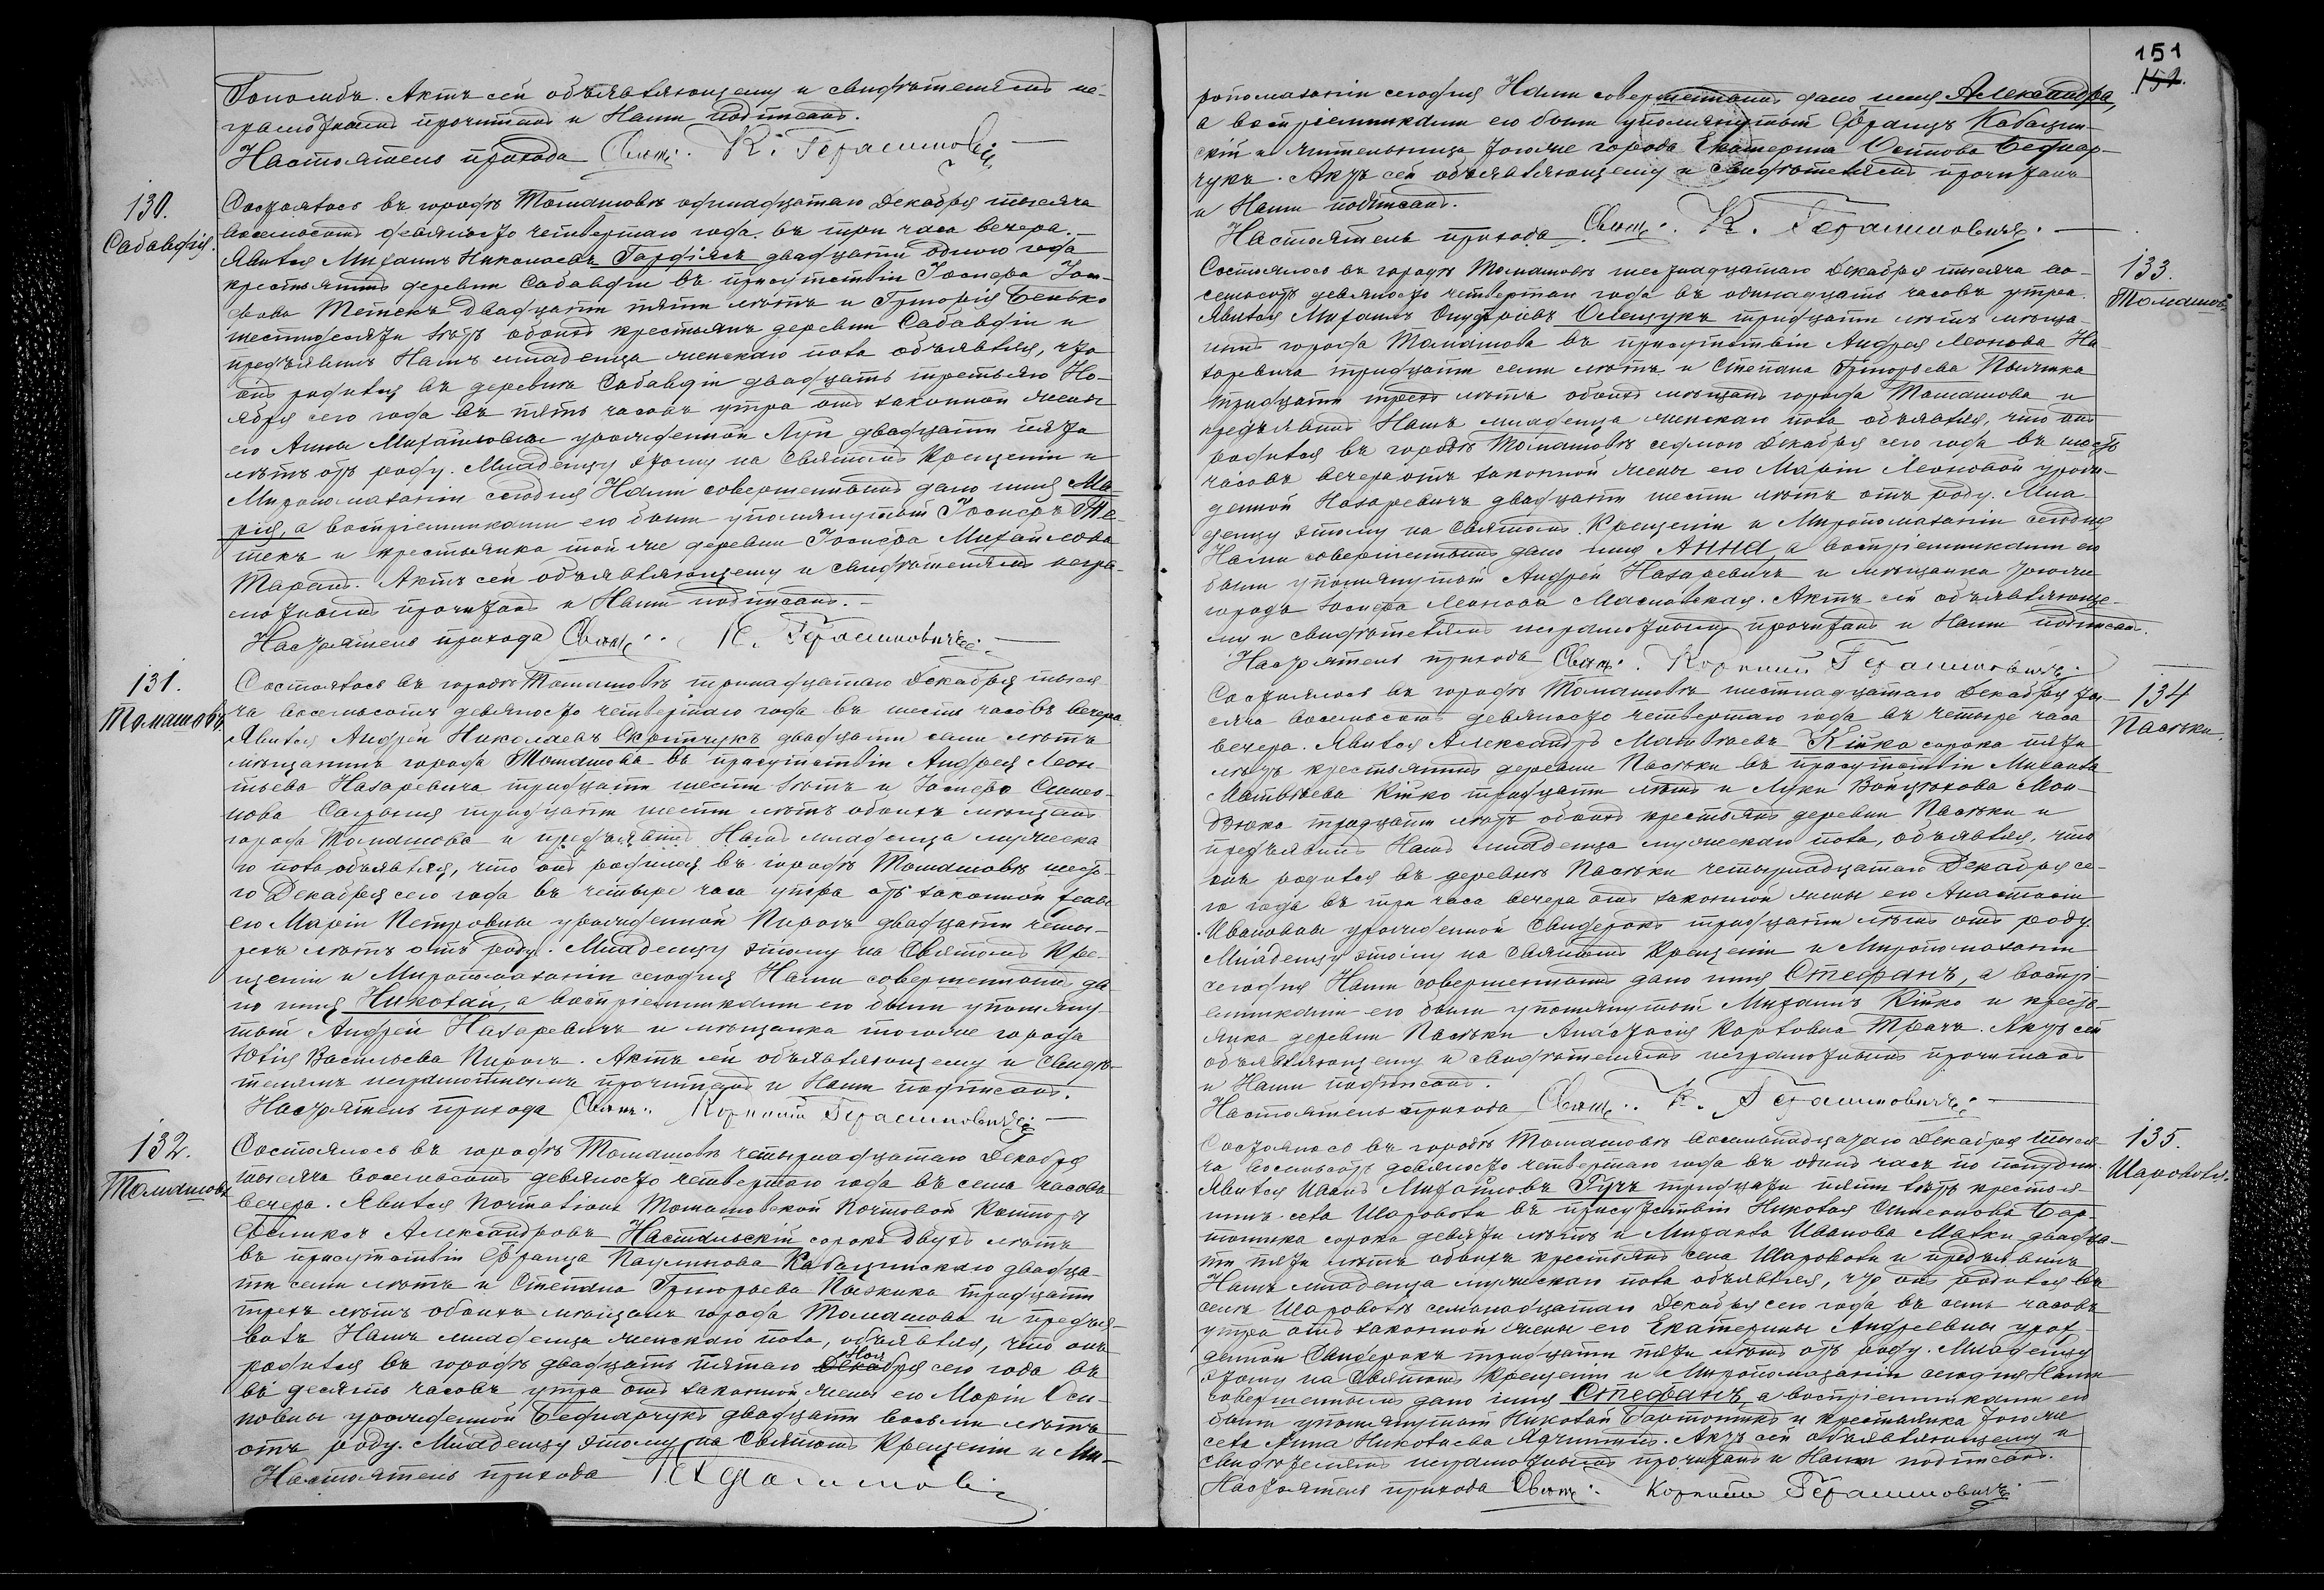 Актъ сей объявляющему и свидѣтелямъ не-
грамотнымъ прочитанъ и Нами подписанъ.
Настоятель прихода Свящ. К. Герасимовичъ
130.
Сабавдія.
Состоялось въ городѣ Томашовѣ одинадцатаго Декабря тысяча
восемьсотъ девяносто четвертаго года въ три часа вечера.
Явился Михаилъ Николаевъ двадцати одного года
крестьянинъ деревни Сабавдіи въ присутствіи Іосифа
двадцати пяти лѣтъ и Григорія Бенько
шестидесяти лѣтъ обоихъ крестьянъ деревни Сабавдіи и
предъявилъ Намъ младенца женскаго пола объявляя, что
онъ родился въ деревнѣ Сабавдіи двадцать третьяго Но-
ября сего года въ пять часовъ утра отъ законной жены
его Анны Михайловны урожденной двадцати пяти
лѣтъ отъ роду. Младенцу этому на Святомъ Крещеніи и
Миропомазаніи сегодня Нами совершенномъ дано имя Ма-
рія, а воспріемниками его были упомянутый Іосифъ
и крестьянка той же деревни Іосифа Михайлова
Таранъ. Актъ сей объявляющему и свидѣтелямъ негра-
мотнымъ прочитанъ и Нами подписанъ.
Настоятель прихода Свящ. К. Герасимовичъ
131.
Томашовъ.
Состоялось въ городѣ Томашовѣ тринадцатаго Декабря тыся-
ча восемьсотъ девяносто четвертаго года въ шесть часовъ вечера
Явился Андрей Николаевъ двадцати семи лѣтъ
мѣщанинъ города Томашова въ присутствіи Андрея Леон-
тьева Назаревича тридцати шести лѣтъ и Іосифа Симео-
нова тридцати шести лѣтъ обоихъ мѣщанъ
города Томашова и предъявилъ Намъ младенца мужеска
го пола объявляя, что онъ родился въ городѣ Томашовѣ шесто-
го Декабря сего года въ четыре часа утра отъ законной жены
его Маріи Петровны урожденной Пирогъ двадцати четы-
рехъ лѣтъ отъ роду. Младенцу этому на Святомъ Кре-
щеніи и Миропомазаніи сегодня Нами совершенномъ да-
но имя Николай, а воспріемниками его были упомяну-
тый Андрей Назаревичъ и мѣщанка того же города
Юлія Васильева Пирогъ. Актъ сей объявляющему и свидѣ-
телямъ неграмотнымъ прочитанъ и Нами подписанъ.
Настоятель прихода Свящ. Корнилій Герасимовичъ
132.
Томашовъ
Состоялось въ городѣ Томашовѣ четырнадцатаго Декабря
тысяча восемьсотъ девяносто четвертаго года въ семь часовъ
вечера. Явился Почталіонъ Томашовской Почтовой Конторы
Феликсъ Александровъ Настальскій сорока двухъ лѣтъ
въ присутствіи Франца Паулинова Кабацинскаго двадца-
ти семи лѣтъ и Степана Григорьева тридцати
трехъ лѣтъ обоихъ мѣщанъ города Томашова и предъя-
вилъ Намъ младенца женскаго пола, объявляя, что онъ
родился въ городѣ двадцать пятаго Декабря Ноя сего года въ
въ десять часовъ утра отъ законной жены его Маріи Оси-
повны урожденной Беднарчукъ двадцати восьми лѣтъ
отъ роду. Младенцу этому на Святомъ Крещеніи и Ми-
Настоятель прихода К Герасимович
151
152.
ропомазаніи сегодня Нами совершенномъ дано имя Александра,
а воспріемниками его были упомянутый Францъ Кабацин-
скій и жительница того же города Екатерина Осипова Беднар-
чукъ. Актъ сей объявляющему и свидѣтелямъ прочитанъ
и Нами подписанъ.
Настоятель прихода Свящ. К. Герасимовичъ.
133.
Томашовъ
Состоялось въ городѣ Томашовѣ шестнадцатаго Декабря тысяча во-
семьсотъ девяносто четвертаго года въ одинадцать часовъ утра.
Явился Михаилъ Онуфріевъ Олещукъ тридцати лѣтъ мѣща-
нинъ города Томашова въ присутствіи Андрея Леонова На-
заревича тридцати семи лѣтъ и Степана Григорьева
тридцати трехъ лѣтъ обоихъ мѣщанъ города Томашова и
предъявилъ Намъ младенца женскаго пола объявляя, что онъ
родился въ городѣ Томашовѣ седьмого Декабря сего года въ шесть
часовъ вечера отъ законной жены его Маріи Леоновой урож-
денной Назаревичъ двадцати шести лѣтъ отъ роду. Мла-
денцу этому на Святомъ Крещеніи и Миропомазаніи сегодня
Нами совершенномъ дано имя Анна, а воспріемниками его
были упомянутый Андрей Назаревичъ и мѣщанка того же
города Іосифа Леонова Масловская. Актъ сей объявляюще-
му и свидѣтелямъ неграмотнымъ прочитанъ и Нами подписанъ.
Настоятель прихода Свящ. Корнилій Герасимовичъ.
134
Пасѣки.
Состоялось въ городѣ Томашовѣ шестнадцатаго Декабря ты-
сяча восемьсотъ девяносто четвертаго года въ четыре часа
вечера. Явился Александръ Матвѣевъ Кицко сорока пяти
лѣтъ крестьянинъ деревни Пасѣки въ присутствіи Михаила
Матвѣева Кицко тридцати лѣтъ и Луки Войцѣхова Мон-
дзюка тридцати лѣтъ обоихъ крестьянъ деревни Пасѣки и
предъявилъ Намъ младенца мужескаго пола, объявляя, что
онъ родился въ деревнѣ Пасѣки четырнадцатаго Декабря се-
го года въ три часа вечера отъ законной жены его Анастасіи
Ивановны урожденной Свидерокъ тридцати лѣтъ отъ роду.
Младенцу этому на Святомъ Крещеніи и Миропомазаніи
сегодня Нами совершенномъ дано имя Стефанъ, а воспрі-
емниками его были упомянутый Михаилъ Кицко и кресть-
янка деревни Пасѣки Анастасія Карповна Трачъ. Актъ сей
объявляющему и свидѣтелямъ неграмотнымъ прочитанъ
и Нами подписанъ.
Настоятель прихода Свящ. К. Герасимовичъ.
135.
Шароволя.
Состоялось въ городѣ Томашовѣ восемнадцатаго Декабря тыся-
ча восемьсотъ девяносто четвертаго года въ одинъ часъ по полудни.
Явился Иванъ Михайловъ Гучъ тридцати пяти лѣтъ крестья-
нинъ села Шароволи въ присутствіи Николая Симеонова Бар-
тошика сорока девяти лѣтъ и Михаила Иванова двадца-
ти пяти лѣтъ обоихъ крестьянъ села Шароволи и предъявилъ
Намъ младенца мужескаго пола объявляя, что онъ родился въ
селѣ Шароволѣ семнадцатаго Декабря сего года въ семь часовъ
утра отъ законной жены его Екатерины Андреевны урож-
денной Свидерокъ тридцати пяти лѣтъ отъ роду. Младенцу
этому на Святомъ Крещеніи и Миропомазаніи сегодня Нами
совершенномъ дано имя Стефанъ, а воспріемниками его
были упомянутый Николай и крестьянка того же
села Анна Николаева. Актъ сей объявляющему и
свидѣтелямъ неграмотнымъ прочитанъ и Нами подписанъ.
Настоятель прихода Свящ. Корнилій Герасимовичъ.